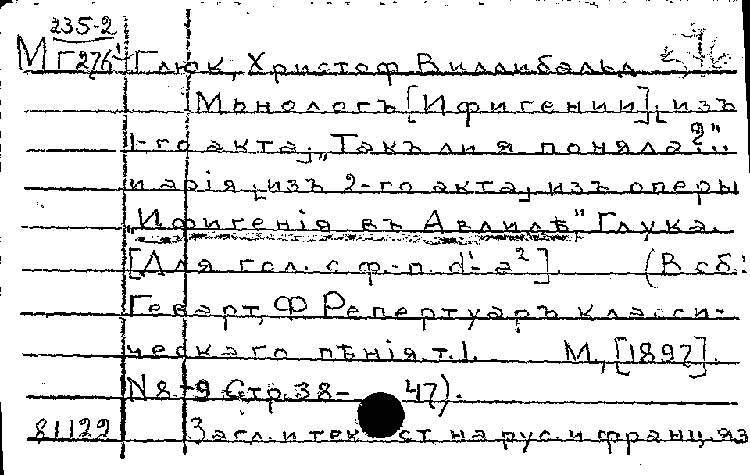 235-2
М Г276 Глюк, Христоф Виллибальд
Монологъ [Ифигении], изъ
1-го акта, „Такъ ли я поняла?"..
и арія изъ 2-го акта, изъ оперы
„Ифигенія въ Авлидѣ" Глука.
[Для гол. с ф.-п. d¹-a²]. (В сб.:
Геварт, Ф Репертуаръ класси-
ческаго пѣнія. т.1. М., [1897].
N 8-9 Стр. 38-47).
81122 Загл. и текст на рус. и франц. яз